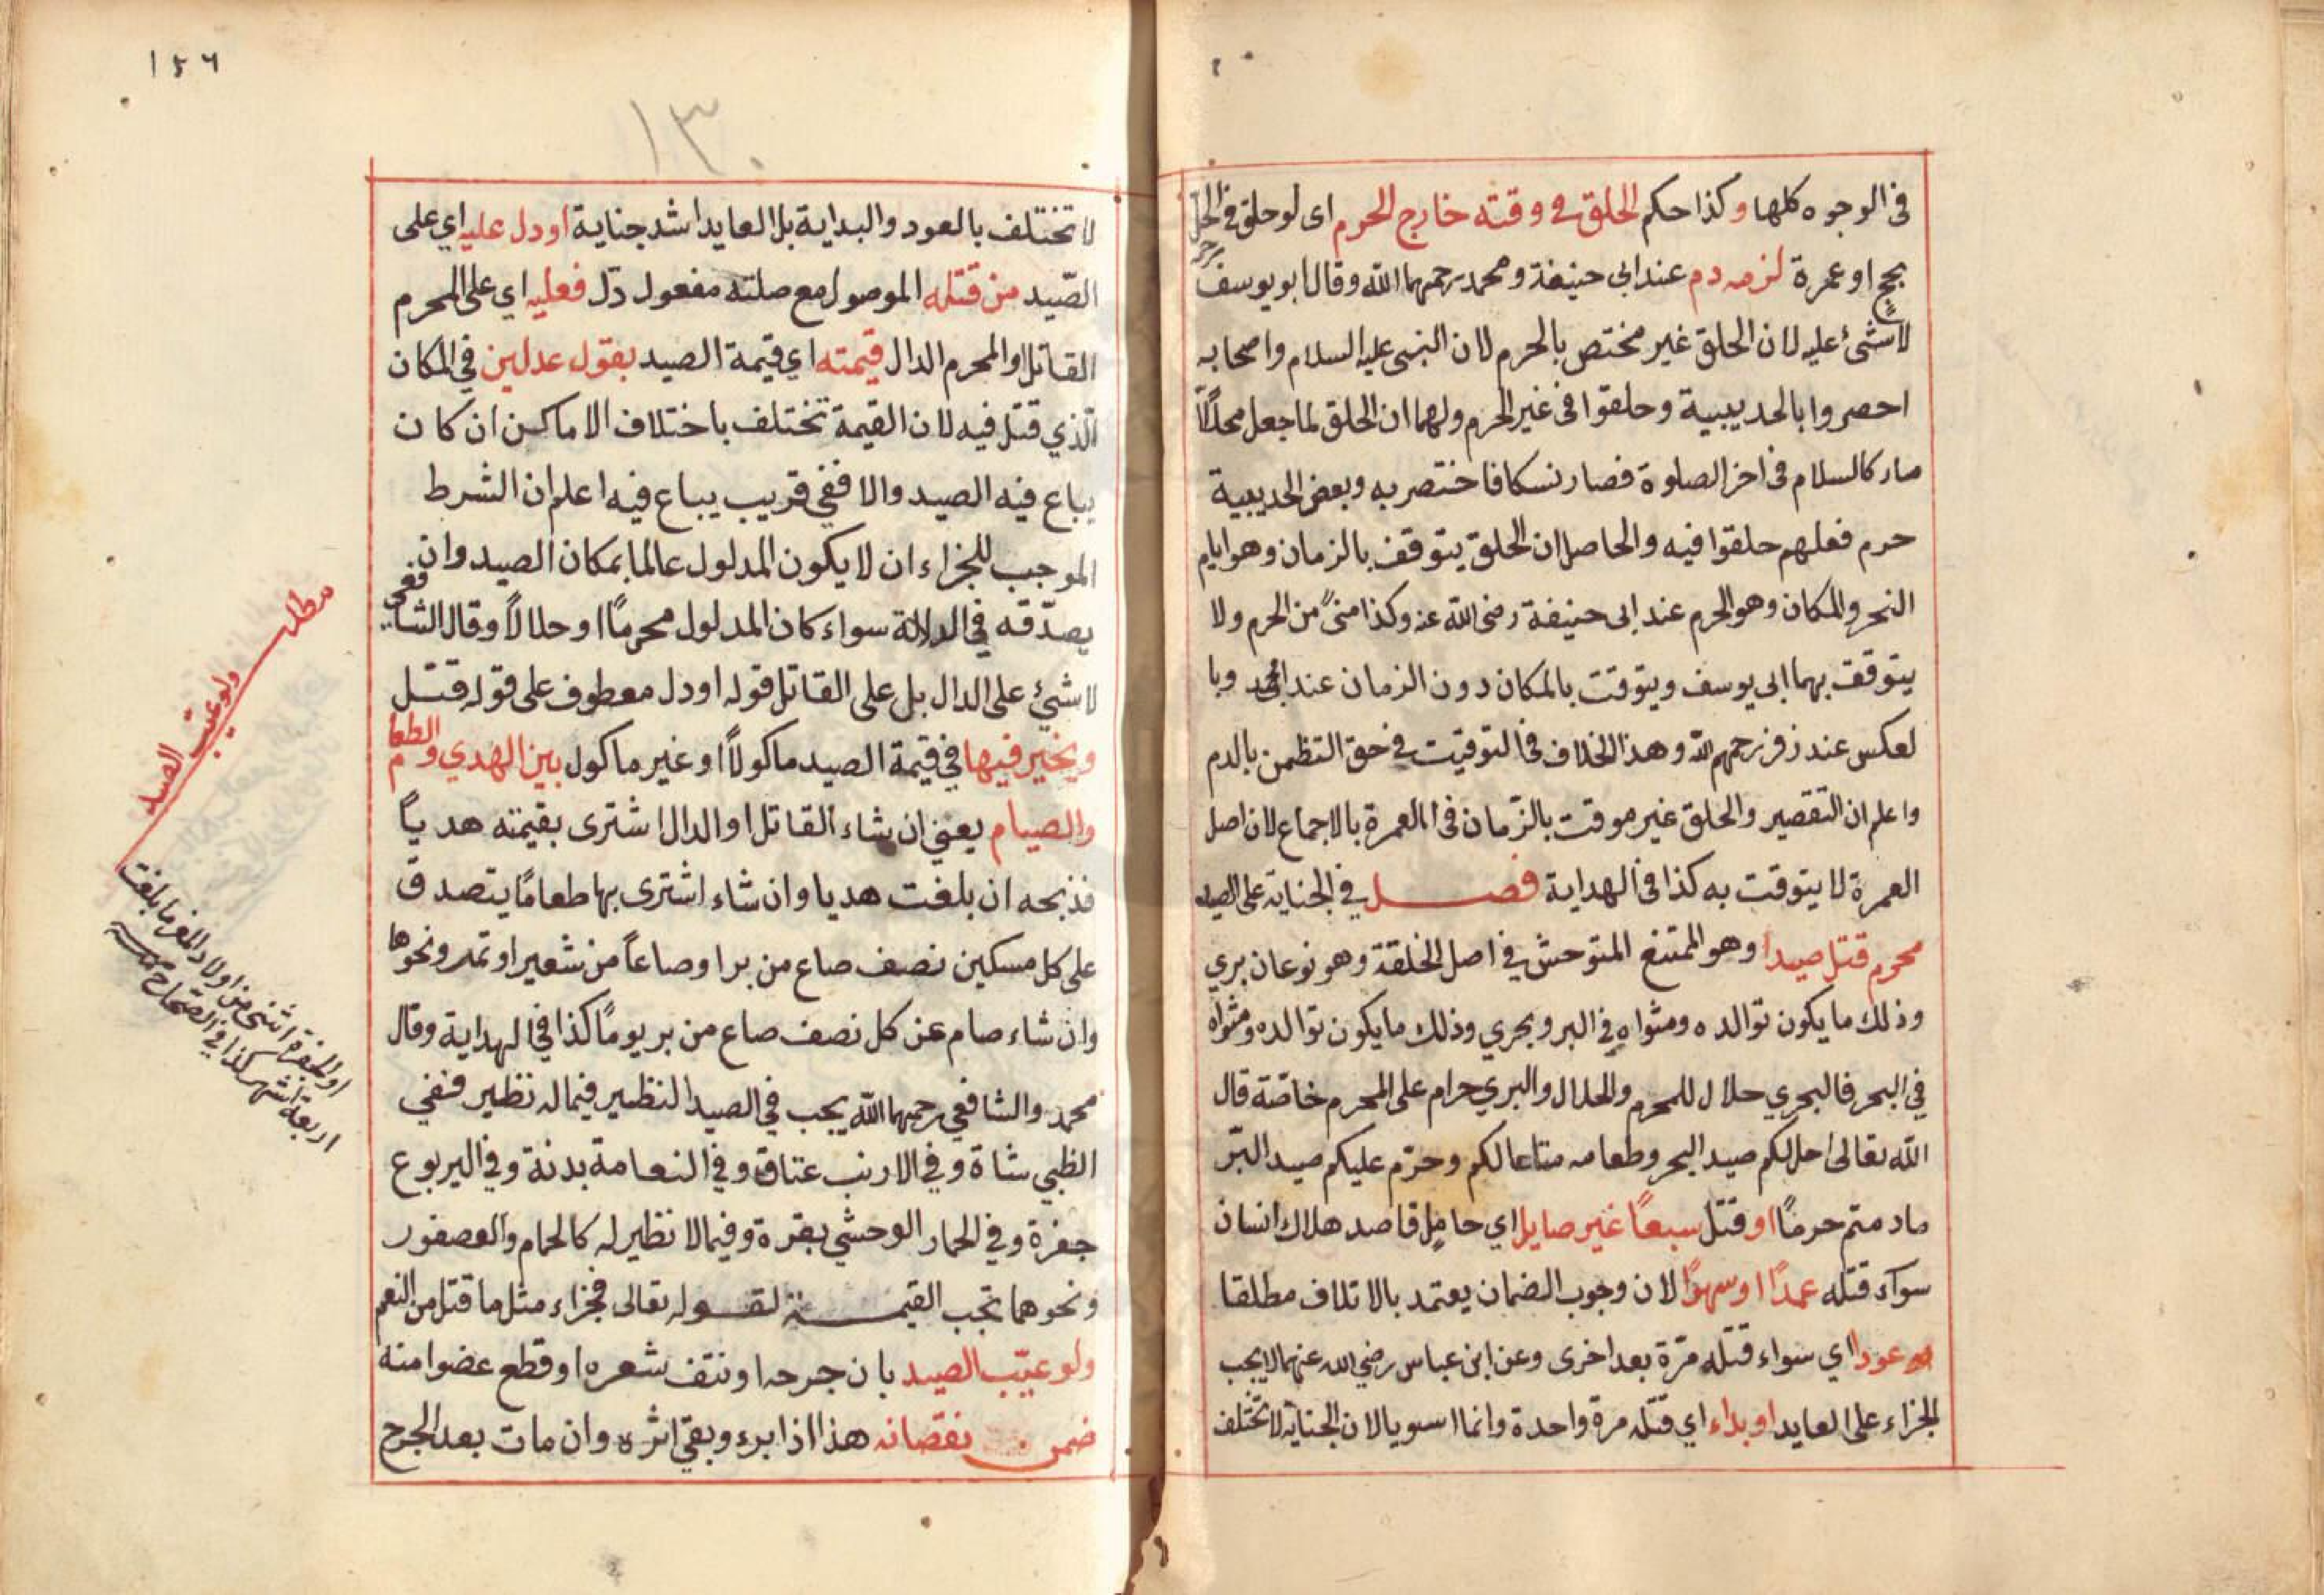 فى الوجوه كلها وكذا حكم الحلق في وقته خارج الحرم اى لو حلق فى الحل
بحج او عمرة لزمه دم عند ابى حنيفة ومحمد رحمهما الله وقال ابو يوسف
لا شئ عليه لان الحلق غير مختص بالحرم لان النبى عليه السلام واصحابه
احصروا بالحديبية وحلقوا فى غير الحرم ولهما ان الحلق لما جعل محللا
صار كالسلام فى اخر الصلوة فصار نسكا فاختصر به وبعض الحديبية
حرم فعلهم حلقوا فيه والحاصل ان الحلق يتوقف بالزمان وهو ايام
النحر والمكان وهو الحرم عند ابى حنيفة رضى الله عنه وكذا منىً من الحرم ولا
يتوقف بهما ابى يوسف ويتوقت بالمكان دون الزمان عند محمد وبا
لعكس عند زفر رحمهم الله وهذا الخلاف فى التوقيت فى حق التظمن بالدم
واعلم ان التقصير والحلق غير موقت بالزّمان فى العمرة بالاجماع لان اصل
العمرة لا يتوقت به كذا فى الهداية فصل في الجناية على الصيد
محرم قتل صيدا وهو الممتنع المتوحش في اصل الخلقة وهو نوعان بري
وذلك ما يكون توالده ومثواه في البر وبحري وذلك ما يكون توالده ومثواه
في البحر فالبحري حلال للمحرم والحلال والبري حرام على المحرم خاصّة قال
الله تعالى احل لكم صيد البحر وطعامه متاعا لكم وحرّم عليكم صيد البّر
ما دمتم حرمًا او قتل سبعًا غير صايل اي حامِل قاصد هلاك انسان
سوآء قتله عمدًا او سهوًا لان وجوب الضمان يعتمد بالاتلاف مطلقا
عودا اي سواء قتله مرّة بعد اخرى وعن ابن عباس رضي الله عنهما لا يجب
الجزاء على العايد او بداء اي قتله مرة واحدة وانما اسويا لان الجناية لا تختلف
١٤٦
١٣٠
لا تختلف بالعود والبداية بل العايد اشد جناية او دل عليه اي على
الصّيد من قتله الموصول مع صلته مفعول دّل فعليه اي على المحرم
القاتل او المحرم الدال قيمته اي قيمة الصيد بقول عدلين في المكان
الّذي قتل فيه لان القيمة تختلف باختلاف الاماكن ان كان
يباع فيه الصيد والا ففي قريب يباع فيه اعلم ان الشرط
الموجب للجزاء ان لا يكون المدلول عالما بمكان الصيد وان
يصدّقه في الدلالة سواء كان المدلول محرمًا او حلالاً وقال الشافعى
لا شئ على الدال بل على القاتل قوله او دل معطوف على قوله قتل
ويخير فيها في قيمة الصيد ماكولاً او غير ماكول بين الهدي والطعام
والصيام يعني ان شاء القاتل او الدال اشترى بقيمته هدياً
فذبحه ان بلغت هديا وان شاء اشترى بها طعامًا يتصدق
على كل مسكين نصف صاع من بر او صاعاً من شعير او تمر ونحوها
وان شاء صام عن كل نصف صاع من بر يومًا كذا في الهداية وقال
محمد والشافعي رحمهما الله يجب في الصيد النظير فيما له نظير ففي
الظبي شاة وفي الارنب عتاق وفي النعامة بدنة وفي اليربوع
جفرة وفي الحمار الوحشي بقرة وفيما لا نظير له كالحمام والعصفور
ونحوهما تجب القيمة لقوله تعالى فجزاء مثل ما قتل من النعم
ولو عيّب الصيد بان جرحه او نتف شعره او قطع عضوا منه
ضمن نقصانه هذا اذا برء وبقي اثره وان مات بعد الجرح
مطلب
ولو عيّب الصيد
او الجفرة انثى من اولاد المعز ما بلغت
اربعة اشهر كذا في الصّحاح